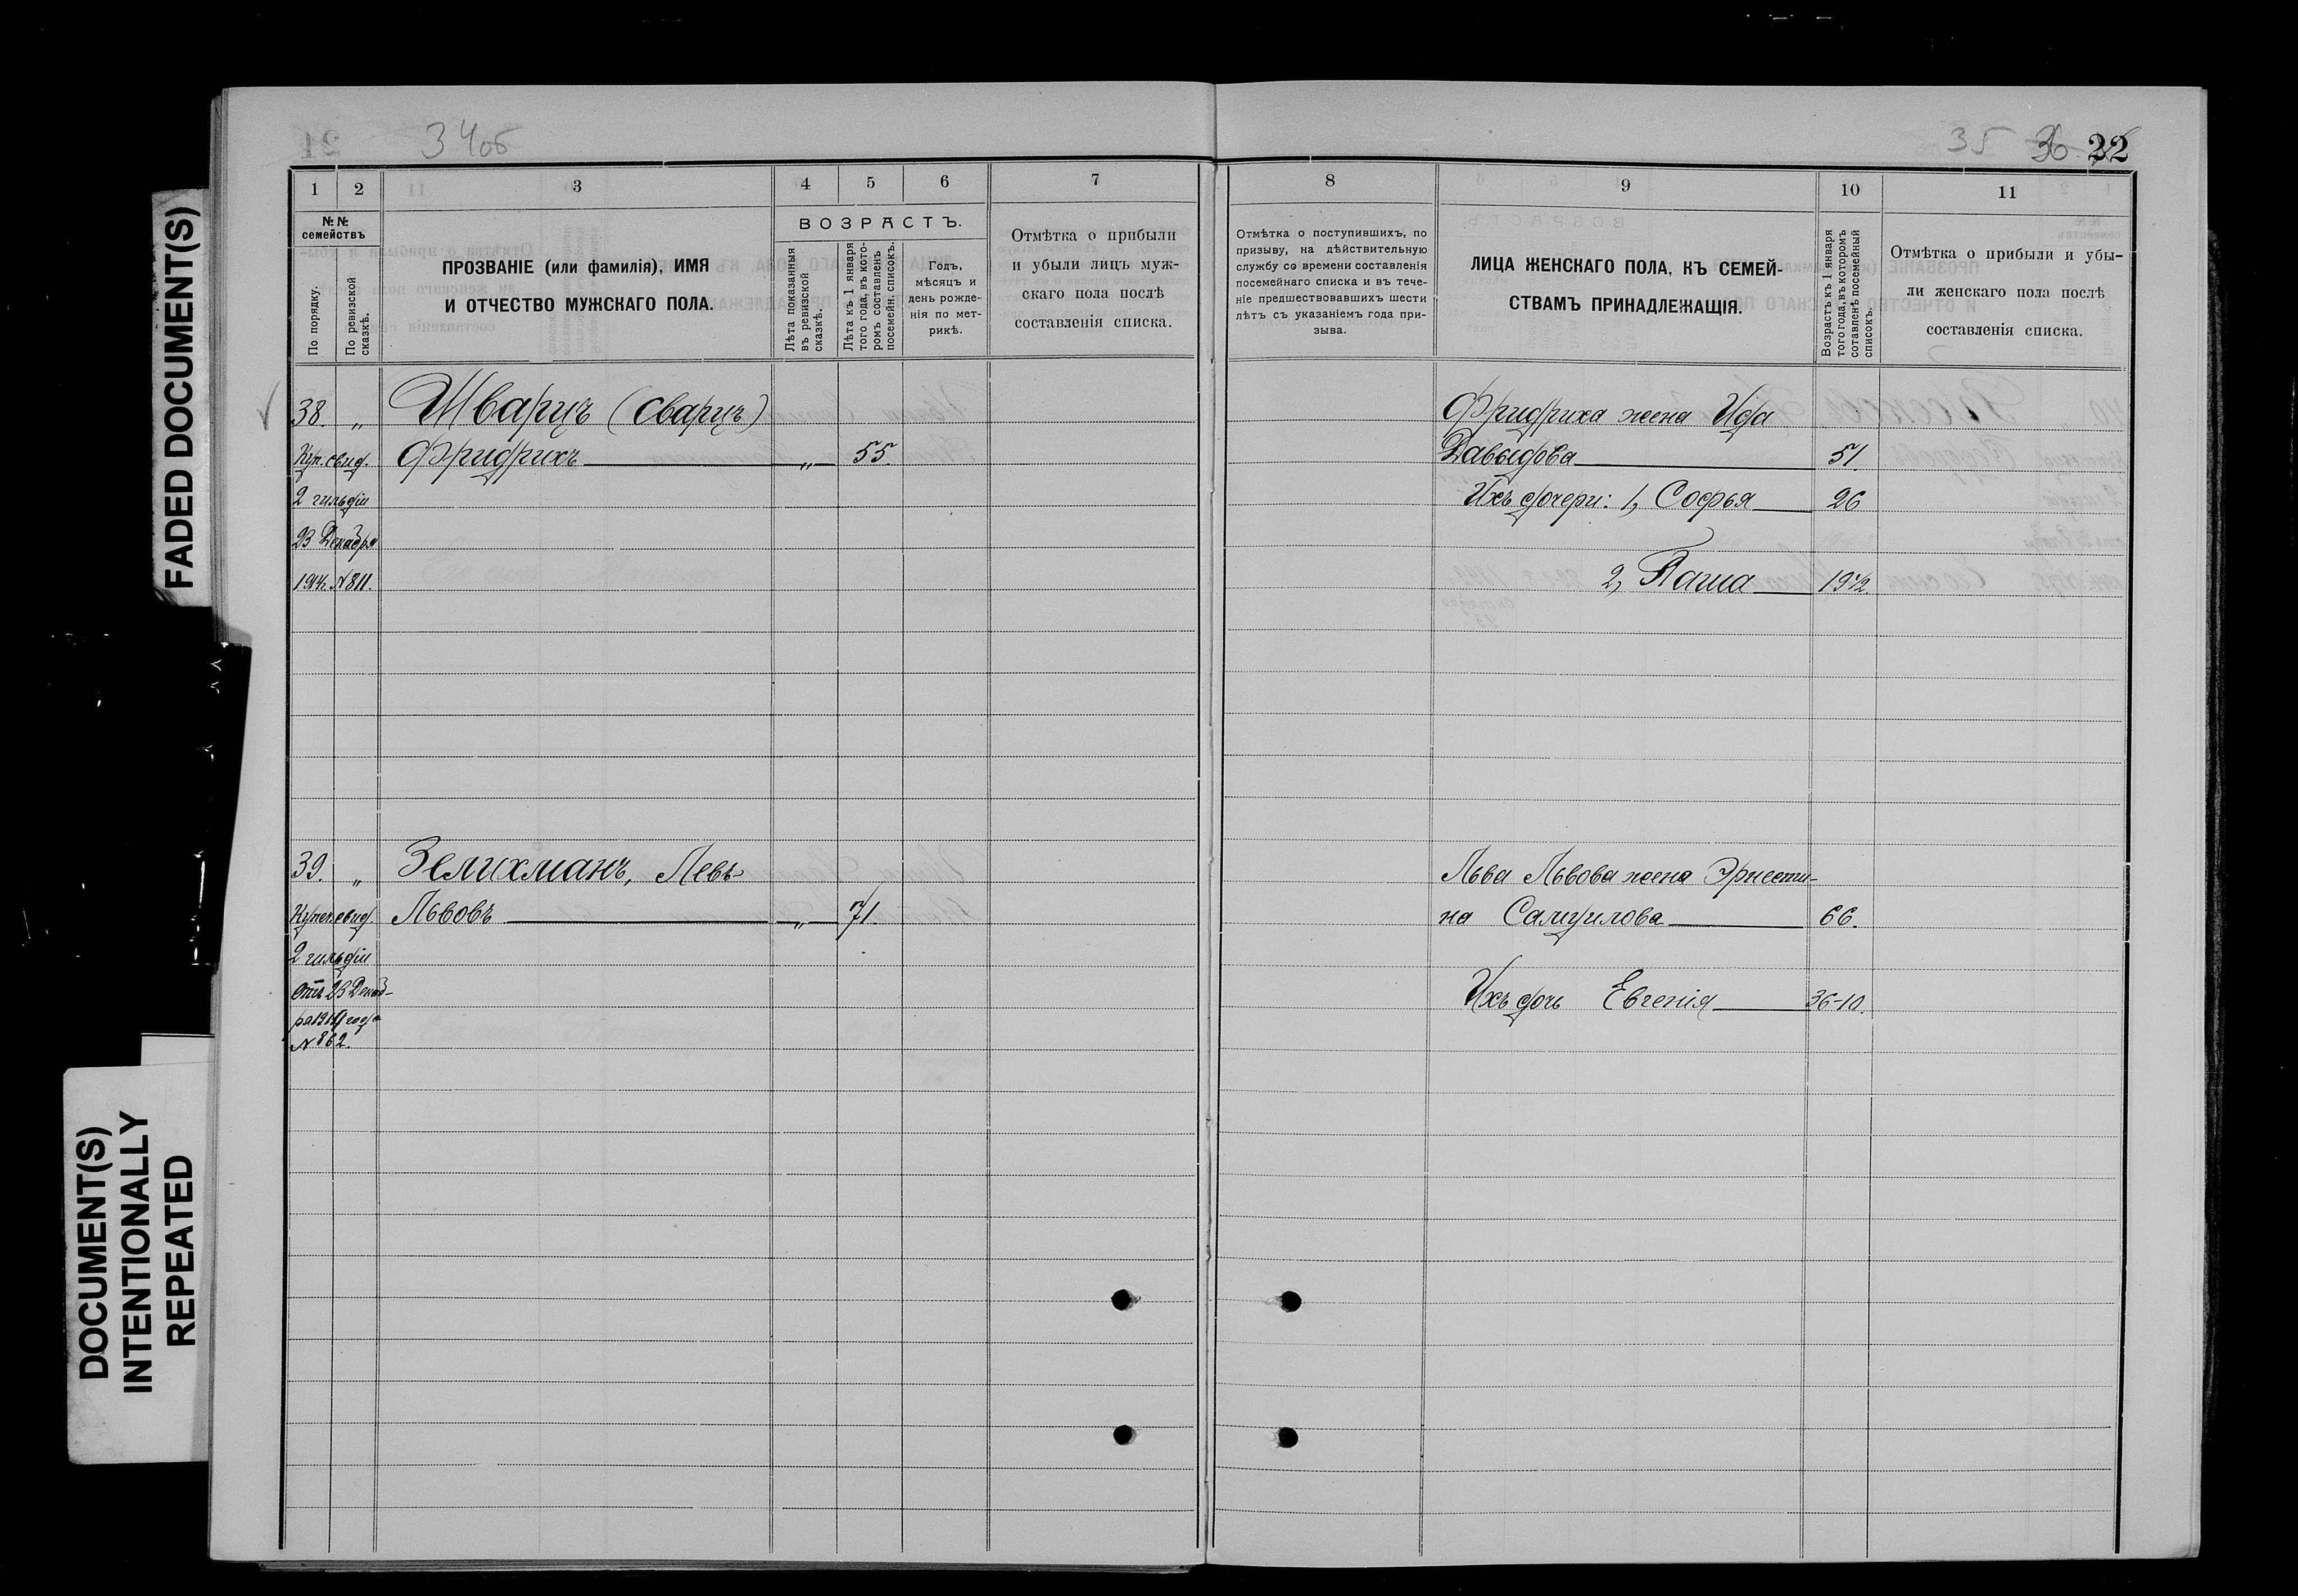 FADED DOCUMENT(S)
DOCUMENT(S)
INTENTIONALLY
REPEATED
34об
1 2 3 4 5 6 7
№№
семействъ
По порядку.
По ревизской
сказкѣ.
ПРОЗВАНІЕ (или фамилія), ИМЯ
И ОТЧЕСТВО МУЖСКАГО ПОЛА.
ВОЗРАСТЪ.
Лѣта показанныя
въ ревизской
сказкѣ.
Лѣта къ 1 января
того года, въ кото-
ромъ составленъ
посемейн. списокъ.
Годъ,
мѣсяцъ и
день рожде-
нія по мет-
рикѣ.
Отмѣтка о прибыли
и убыли лицъ муж-
скаго пола послѣ
составленія списка.
38. „ Шварцъ (Сварцъ)
Куп. свид. Фридрихъ „ 55.
2 гильдіи
23 Декабря
1914. №811.
39. „ Зелихманъ, Левъ
Купеч. свид. Львовъ „ 71.
2 гильдіи
отъ 23 Декаб-
ря 1914 года
№ 862.
35 36 22
8 9 10 11
Отмѣтка о поступившихъ, по
призыву, на дѣйствительную
службу со времени составленія
посемейнаго списка и въ тече-
ніе предшествовавшихъ шести
лѣтъ съ указаніемъ года при-
зыва.
ЛИЦА ЖЕНСКАГО ПОЛА, КЪ СЕМЕЙ-
СТВАМЪ ПРИНАДЛЕЖАЩІЯ.
Возрастъ къ 1 января
того года, въ которомъ
сотавленъ посемейный
списокъ.
Отмѣтка о прибыли и убы-
ли женскаго пола послѣ
составленія списка.
Фридриха жена Ида
Давыдова 51.
Ихъ дочери: 1, Софья 26
2, Паша 19½.
Льва Львова жена Эрнести-
на Самуилова 66.
Ихъ дочь Евгенія 36-10.